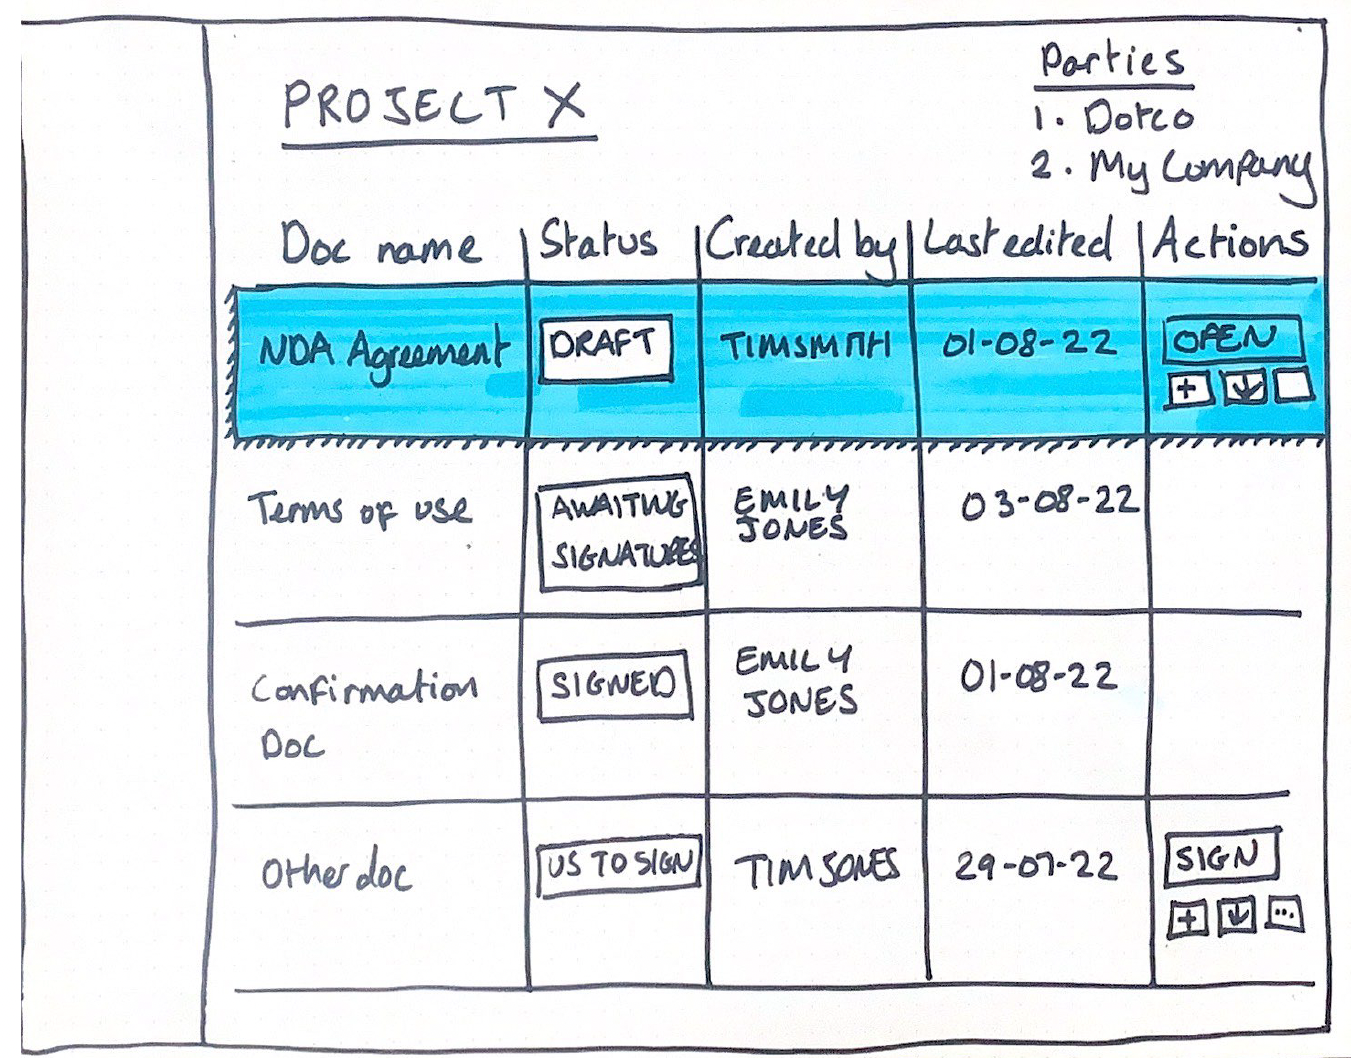 PROJECT X
Parties
1. Dotco
2. My Company
Doc name Status Created by Last edited Actions
NDA Agreement DRAFT TIM SMITH 01-08-22 OPEN
+
Terms of use AWAITING SIGNATURES EMILY JONES 03-08-22
Confirmation Doc SIGNED EMILY JONES 01-08-22
Other doc US TO SIGN TIM JONES 29-07-22 SIGN
+ ...